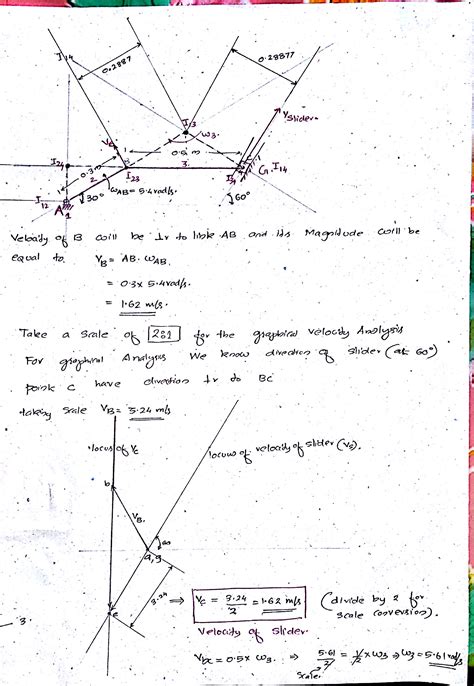 I14
0.2887
0.28877
Vslider
I13
VB
ω3
0.5 m
I24
0.3m
2
3
I23
C, I14
I12
A
1
30°
ωAB = 5.4rad/s
60°
Velocity of B will be ⊥r to link AB and its Magnitude will be
equal to VB = AB. ωAB
= 0.3x 5.4rad/s.
= 1.62 m/s.
Take a Scale of 2:1 for the graphical velocity Analysis
For graphical Analysis We know direction of slider (at 60°)
point C have direction ⊥r to BC
taking scale VB = 3.24 m/s
locus of Vc
locus of velocity of slider (Vc).
b
VB.
60
a, g
c
3.24
⇒ Vc = 3.24/2 = 1.62 m/s (divide by 2 for
scale conversion).
Velocity of Slider.
3.
Vbc = 0.5x ω3. ⇒ 5.61/2 = 1/2 x ω3 ⇒ ω3 = 5.61 rad/s
Scale.